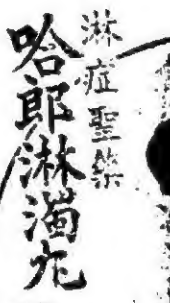 淋症聖藥
哈郎淋濁丸